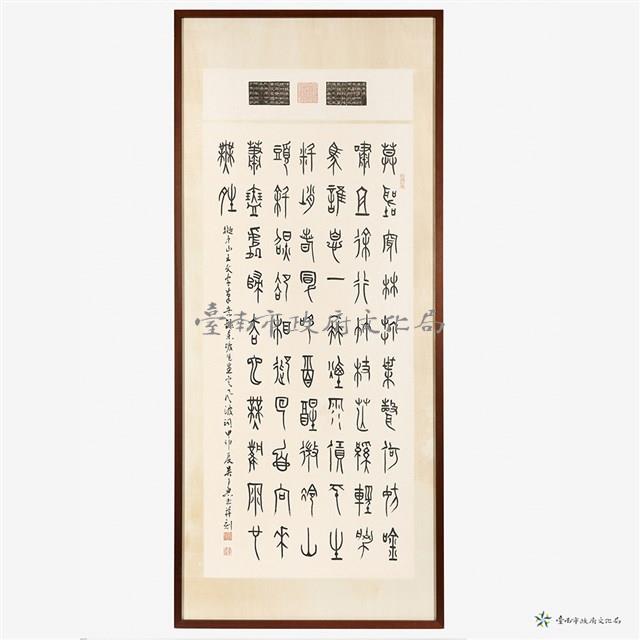 莫聽穿林打葉聲何妨吟
嘯且徐行竹杖芒鞋輕勝
馬誰怕一蓑煙雨任平生
料峭春風吹酒醒微冷山
頭斜照卻相迎回首向來
蕭瑟處歸去也無風雨也
無晴
中山王文字筆意錄東坡先生定風波詞
臺南市政府文化局
臺南市政府文化局